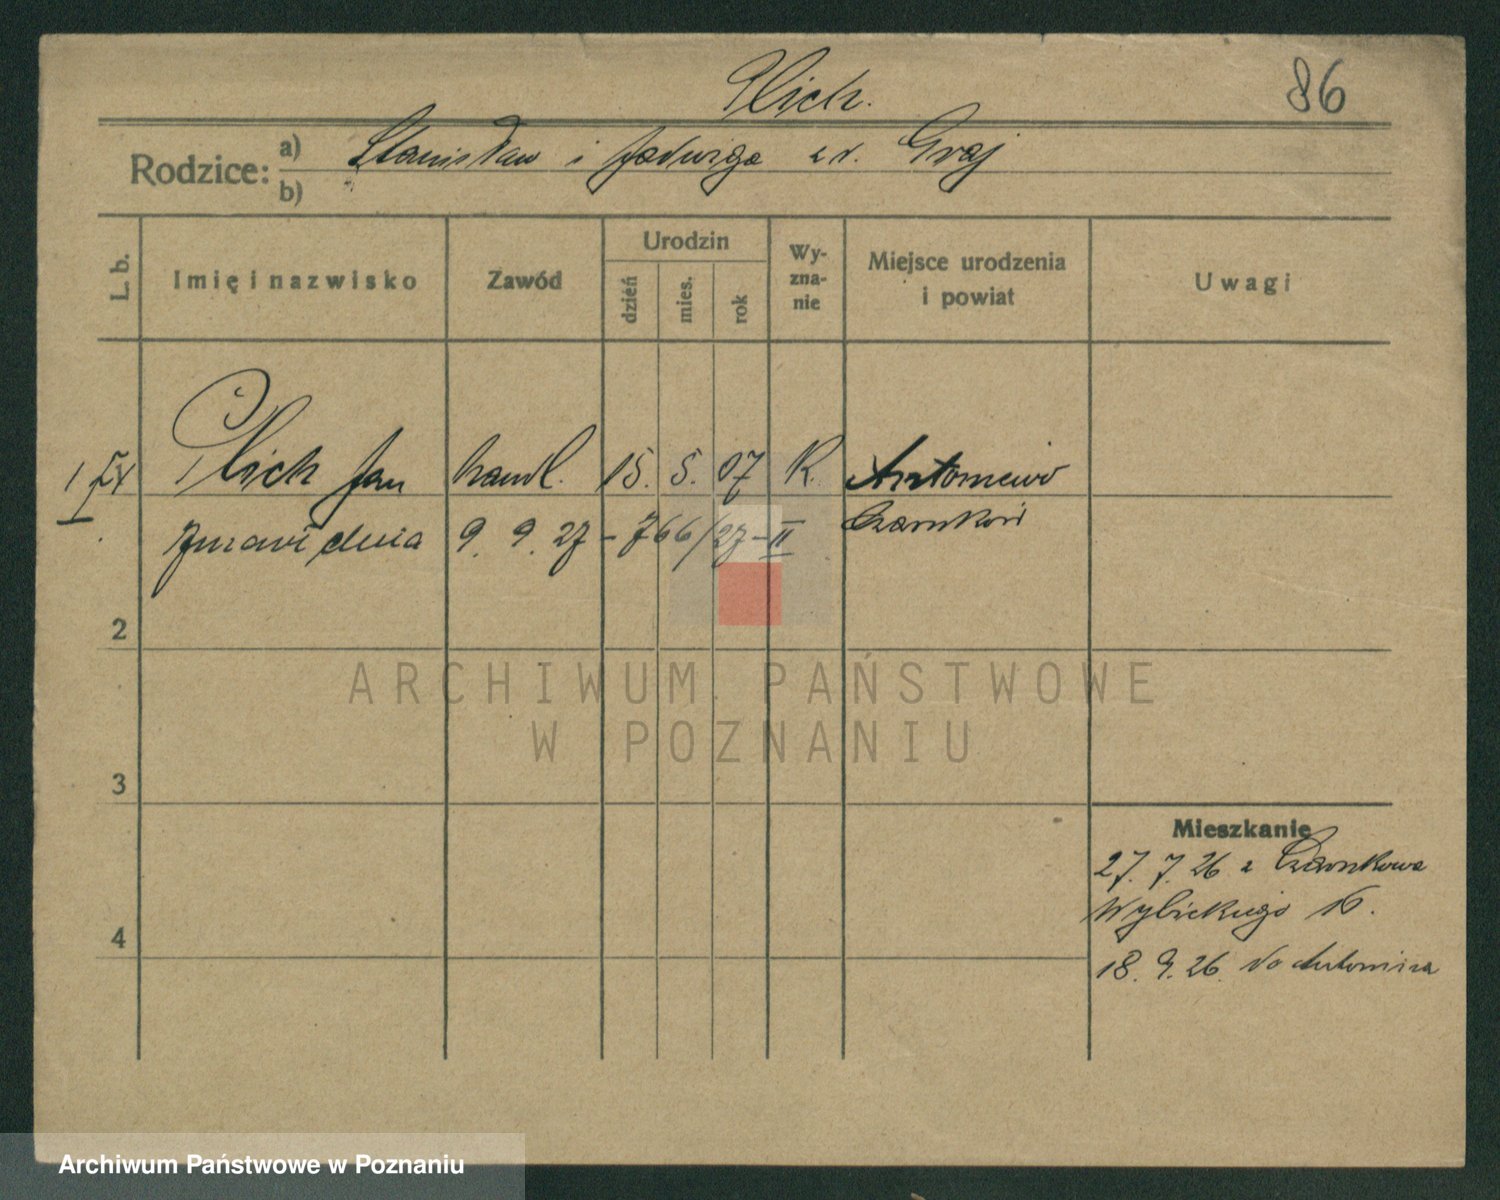 86
Stanisław i Jadwiga z d. Graj
Rodzice: a)
b)
L. b.
Imię i nazwisko
Zawód
Urodzin
dzień
mies.
rok
Wy-
zna-
nie
Miejsce urodzenia
i powiat
Uwagi
1 Jan handl. 15. 5. 07 R. Antoniewo
dnia 9. 9. 27 - 766/27 - II Czarnków
2
ARCHIWUM PAŃSTWOWE
W POZNANIU
3
Mieszkanie
27. 7. 26 z Czarnkowa
Wybickiego 16.
4
18. 9. 26 do
Archiwum Państwowe w Poznaniu